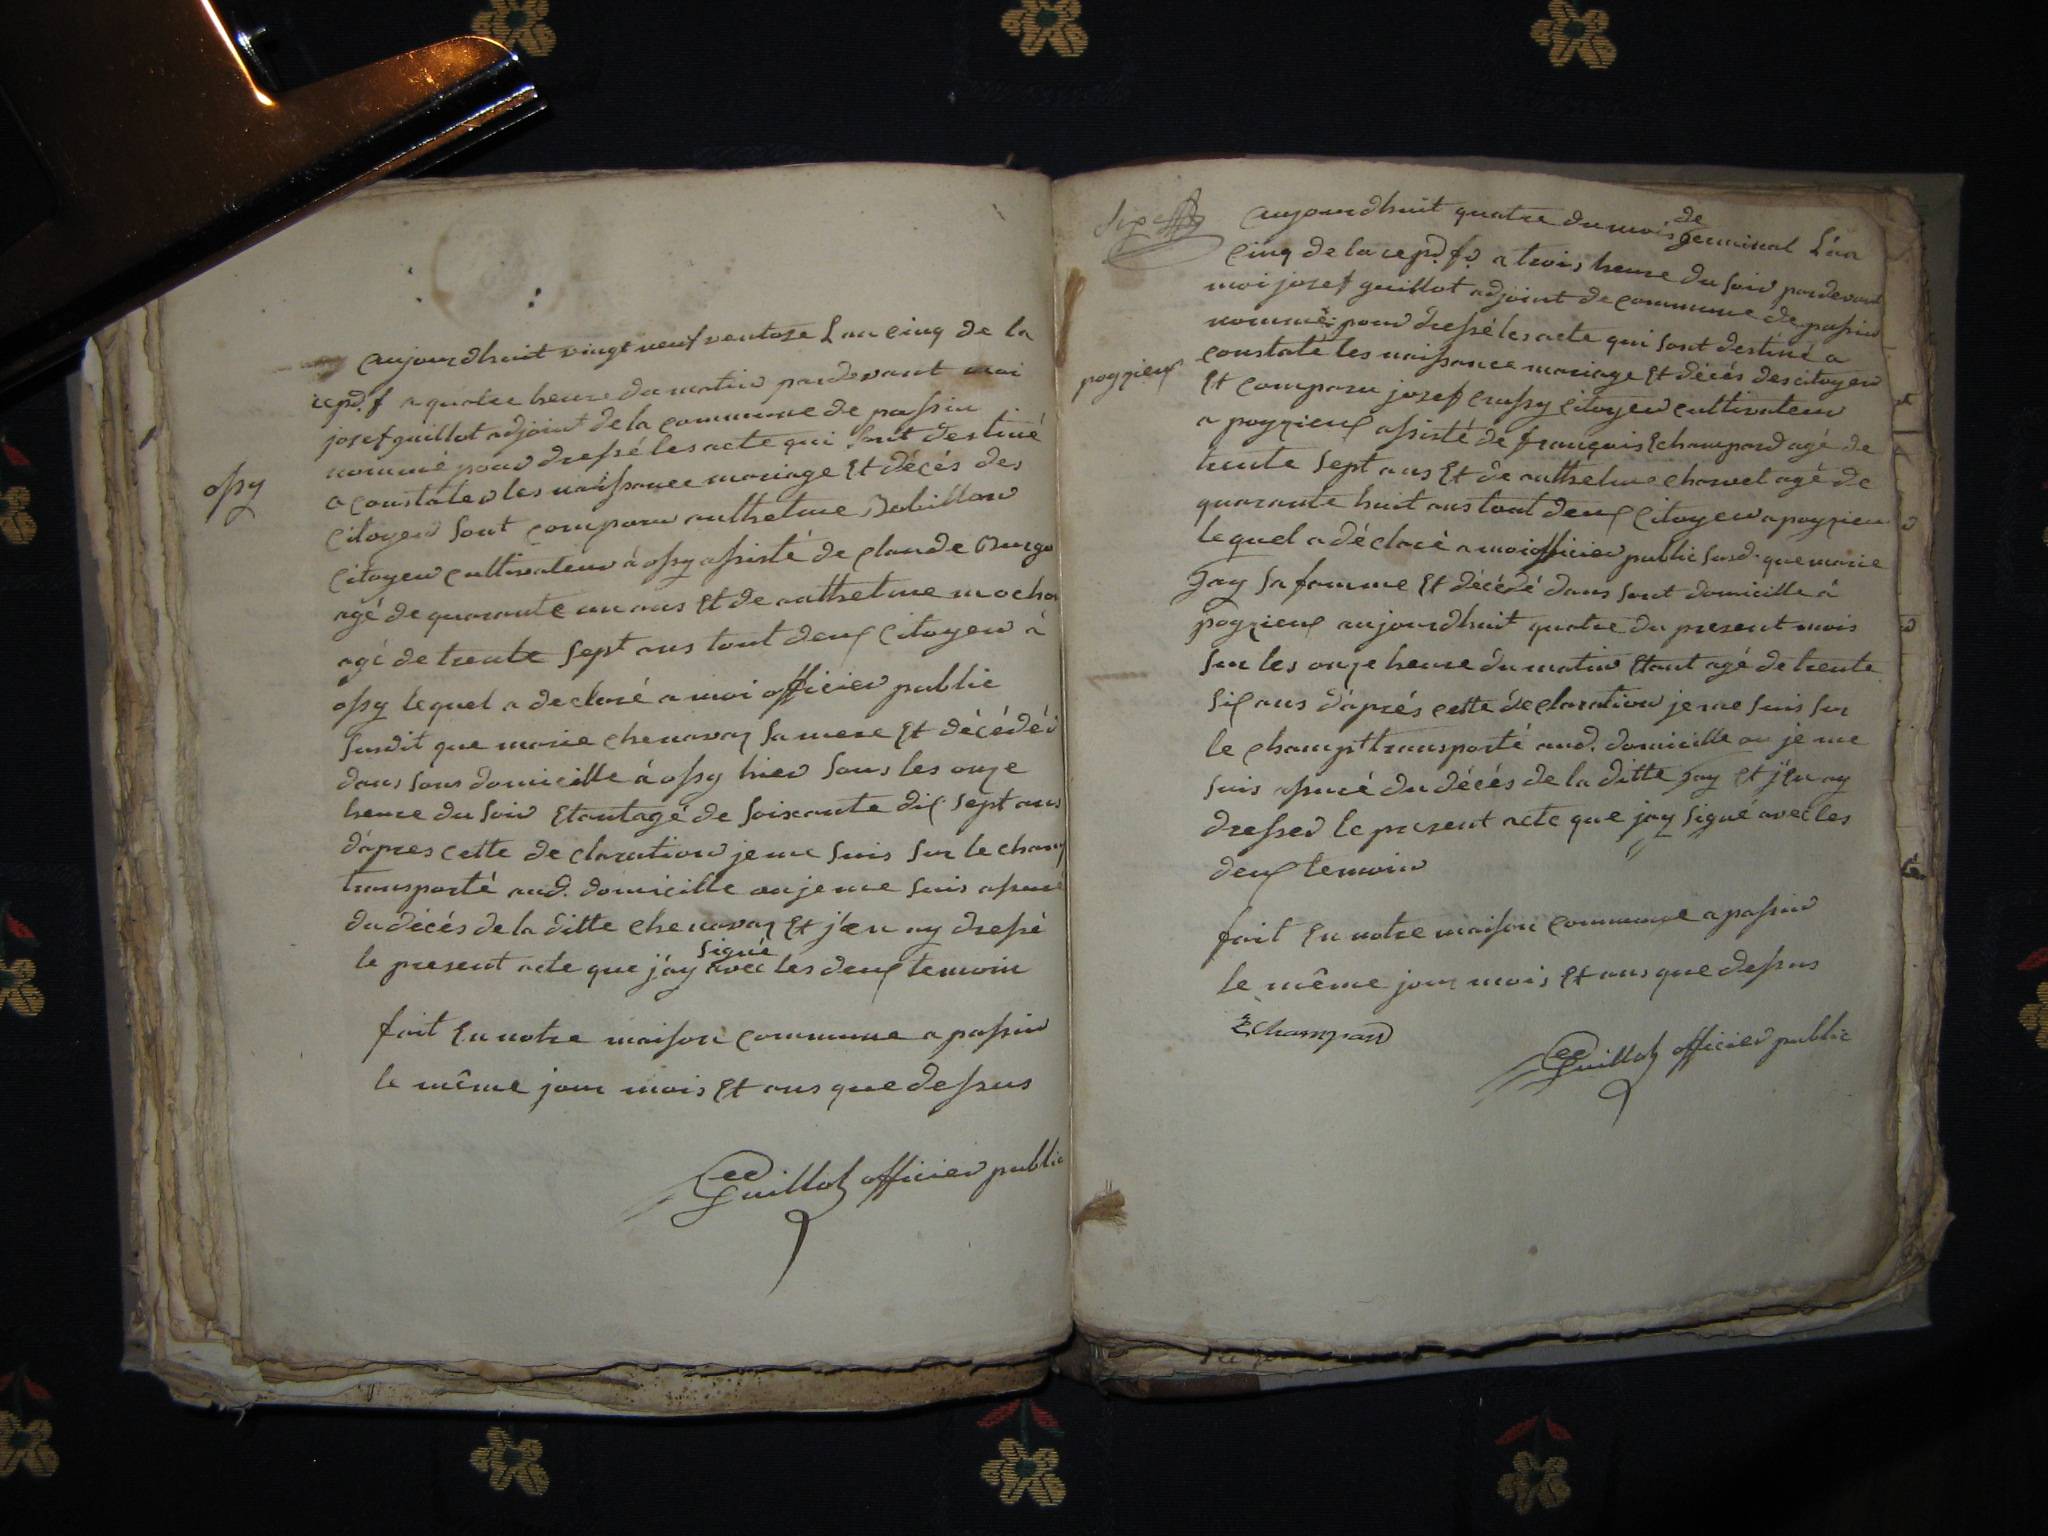 aujourdhuit vingt neuf ventoze Lan cinq de la
repd. f a quatre heure du matin pardevant moi
josef guillot adjoint de la commune de passin
nommé pour dressé les acte qui sont destiné
a constater les naissance mariage Et décés des
citoyen sont comparu anthelme Robillon
citoyen cultivateur á ossy assisté de claude Burgo
agé de quarante un ans Et de anthelme mochon
agé de trente sept ans tout deux citoyen à
ossy lequel a declaré a moi officier public
susdit que marie chenavaz sa mere Et décédéé
dans sons domicille á ossy hier sous les onze
heure du soir Etant agé de soixante dix sept ans
d'apres cette declaration je me suis sur le champ
transporté aud. domicille ou je me suis assuré
du décés de la ditte chenavaz Et j'en ay dressé
le present acte que j'ay signé avec les deux temoin
fait En notre maison commune a passin
le même jour mois Et ans que dessus
Guillot officier public
ossy
six
aujourdhuit quatre du mois de germinal L'an
cinq de la repd. fe. a trois heure du soir pardevant
moi josef guillot adjoint de commune de passin
nommé pour dressé les acte qui sont destiné a
constaté les naissance mariage Et décés des citoyen
Et comparu josef crussy citoyen cultivateur
a poyzieux assisté de françois Echampard agé de
trente sept ans Et de anthelme charvet agé de
quarante huit ans tout deux citoyen a poyzieu
lequel a déclaré a moi officier public susd. que marie
Jay sa famme Et décédé dans sont domicille á
poyzieux aujourdhuit quatre du present mois
sur les onze heure du matin Etant agé de trente
six ans d'aprés cette déclaration je me suis sur
le champt transporté aud. domicille ou je me
suis assuré du décés de la ditte jay Et j'En ay
dresser le present acte que jay signé avec les
deux temoin
fait En notre maison commune a passin
le même jour mois Et ans que dessus
Echampard
Guillot officier public
poyzieux